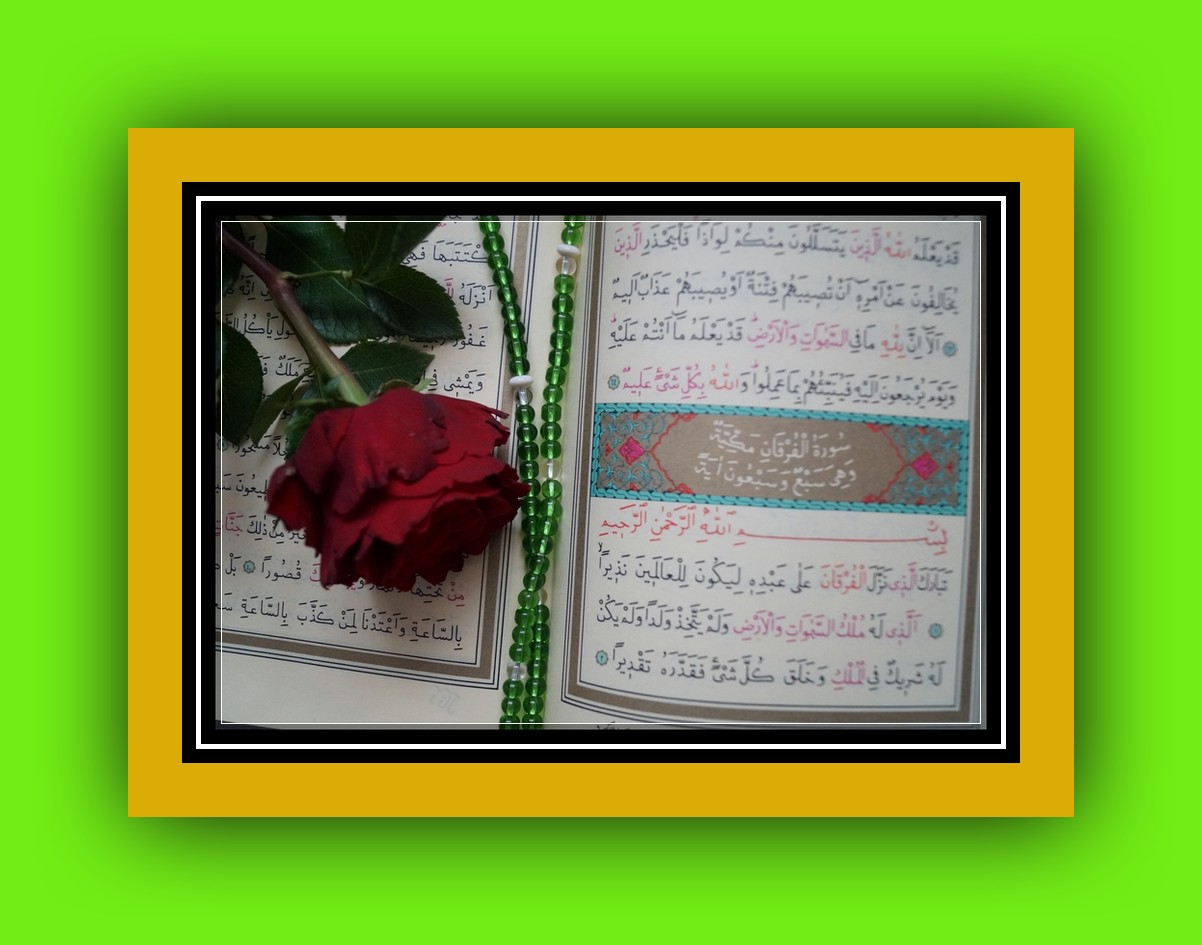 قَدْ يَعْلَمُ اللّٰهُ الَّذ۪ينَ يَتَسَلَّلُونَ مِنْكُمْ لِوَاذًا فَلْيَحْذَرِ الَّذ۪ينَ
يُخَالِفُونَ عَنْ اَمْرِه۪ٓ اَنْ تُص۪يبَهُمْ فِتْنَةٌ اَوْ يُص۪يبَهُمْ عَذَابٌ اَل۪يمٌ
اَلَٓا اِنَّ لِلّٰهِ مَا فِي السَّمٰوَاتِ وَالْاَرْضِ قَدْ يَعْلَمُ مَٓا اَنْتُمْ عَلَيْهِ
وَيَوْمَ يُرْجَعُونَ اِلَيْهِ فَيُنَبِّئُهُمْ بِمَا عَمِلُوا وَاللّٰهُ بِكُلِّ شَيْءٍ عَل۪يمٌ
سُورَةُ الْفُرْقَانِ مَكِّيَّةٌ
وَهِيَ سَبْعٌ وَسَبْعُونَ اٰيَةً
بِسْمِ اللّٰهِ الرَّحْمٰنِ الرَّح۪يمِ
تَبَارَكَ الَّذ۪ي نَزَّلَ الْفُرْقَانَ عَلٰى عَبْدِه۪ لِيَكُونَ لِلْعَالَم۪ينَ نَذ۪يرًا
اَلَّذ۪ي لَهُ مُلْكُ السَّمٰوَاتِ وَالْاَرْضِ وَلَمْ يَتَّخِذْ وَلَدًا وَلَمْ يَكُنْ
لَهُ شَر۪يكٌ فِي الْمُلْكِ وَخَلَقَ كُلَّ شَيْءٍ فَقَدَّرَهُ تَقْد۪يرًا
كْتَتَبَهَا
اَنْزَلَهُ اِنَّهُ
غَفُورًا يَأْكُلُ
وَيَمْش۪ي مَلَكٌ
مِنْ ذٰلِكَ جَنَّاتٍ
مِنْ تَحْتِهَا قُصُورًا بَلْ
بِالسَّاعَةِ وَاَعْتَدْنَا لِمَنْ كَذَّبَ بِالسَّاعَةِ